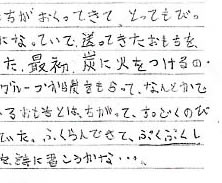 ちがおくってきて、とってもびっ
になっていて、送ってきたおもちを、
た。最初、炭に火をつけるの
グループが間をもって、なんとかで
いるおもちとは、ちがって、すっごくのび
でいた。ふくらんできて、ぷくぷくし
詩に書こうかな…。